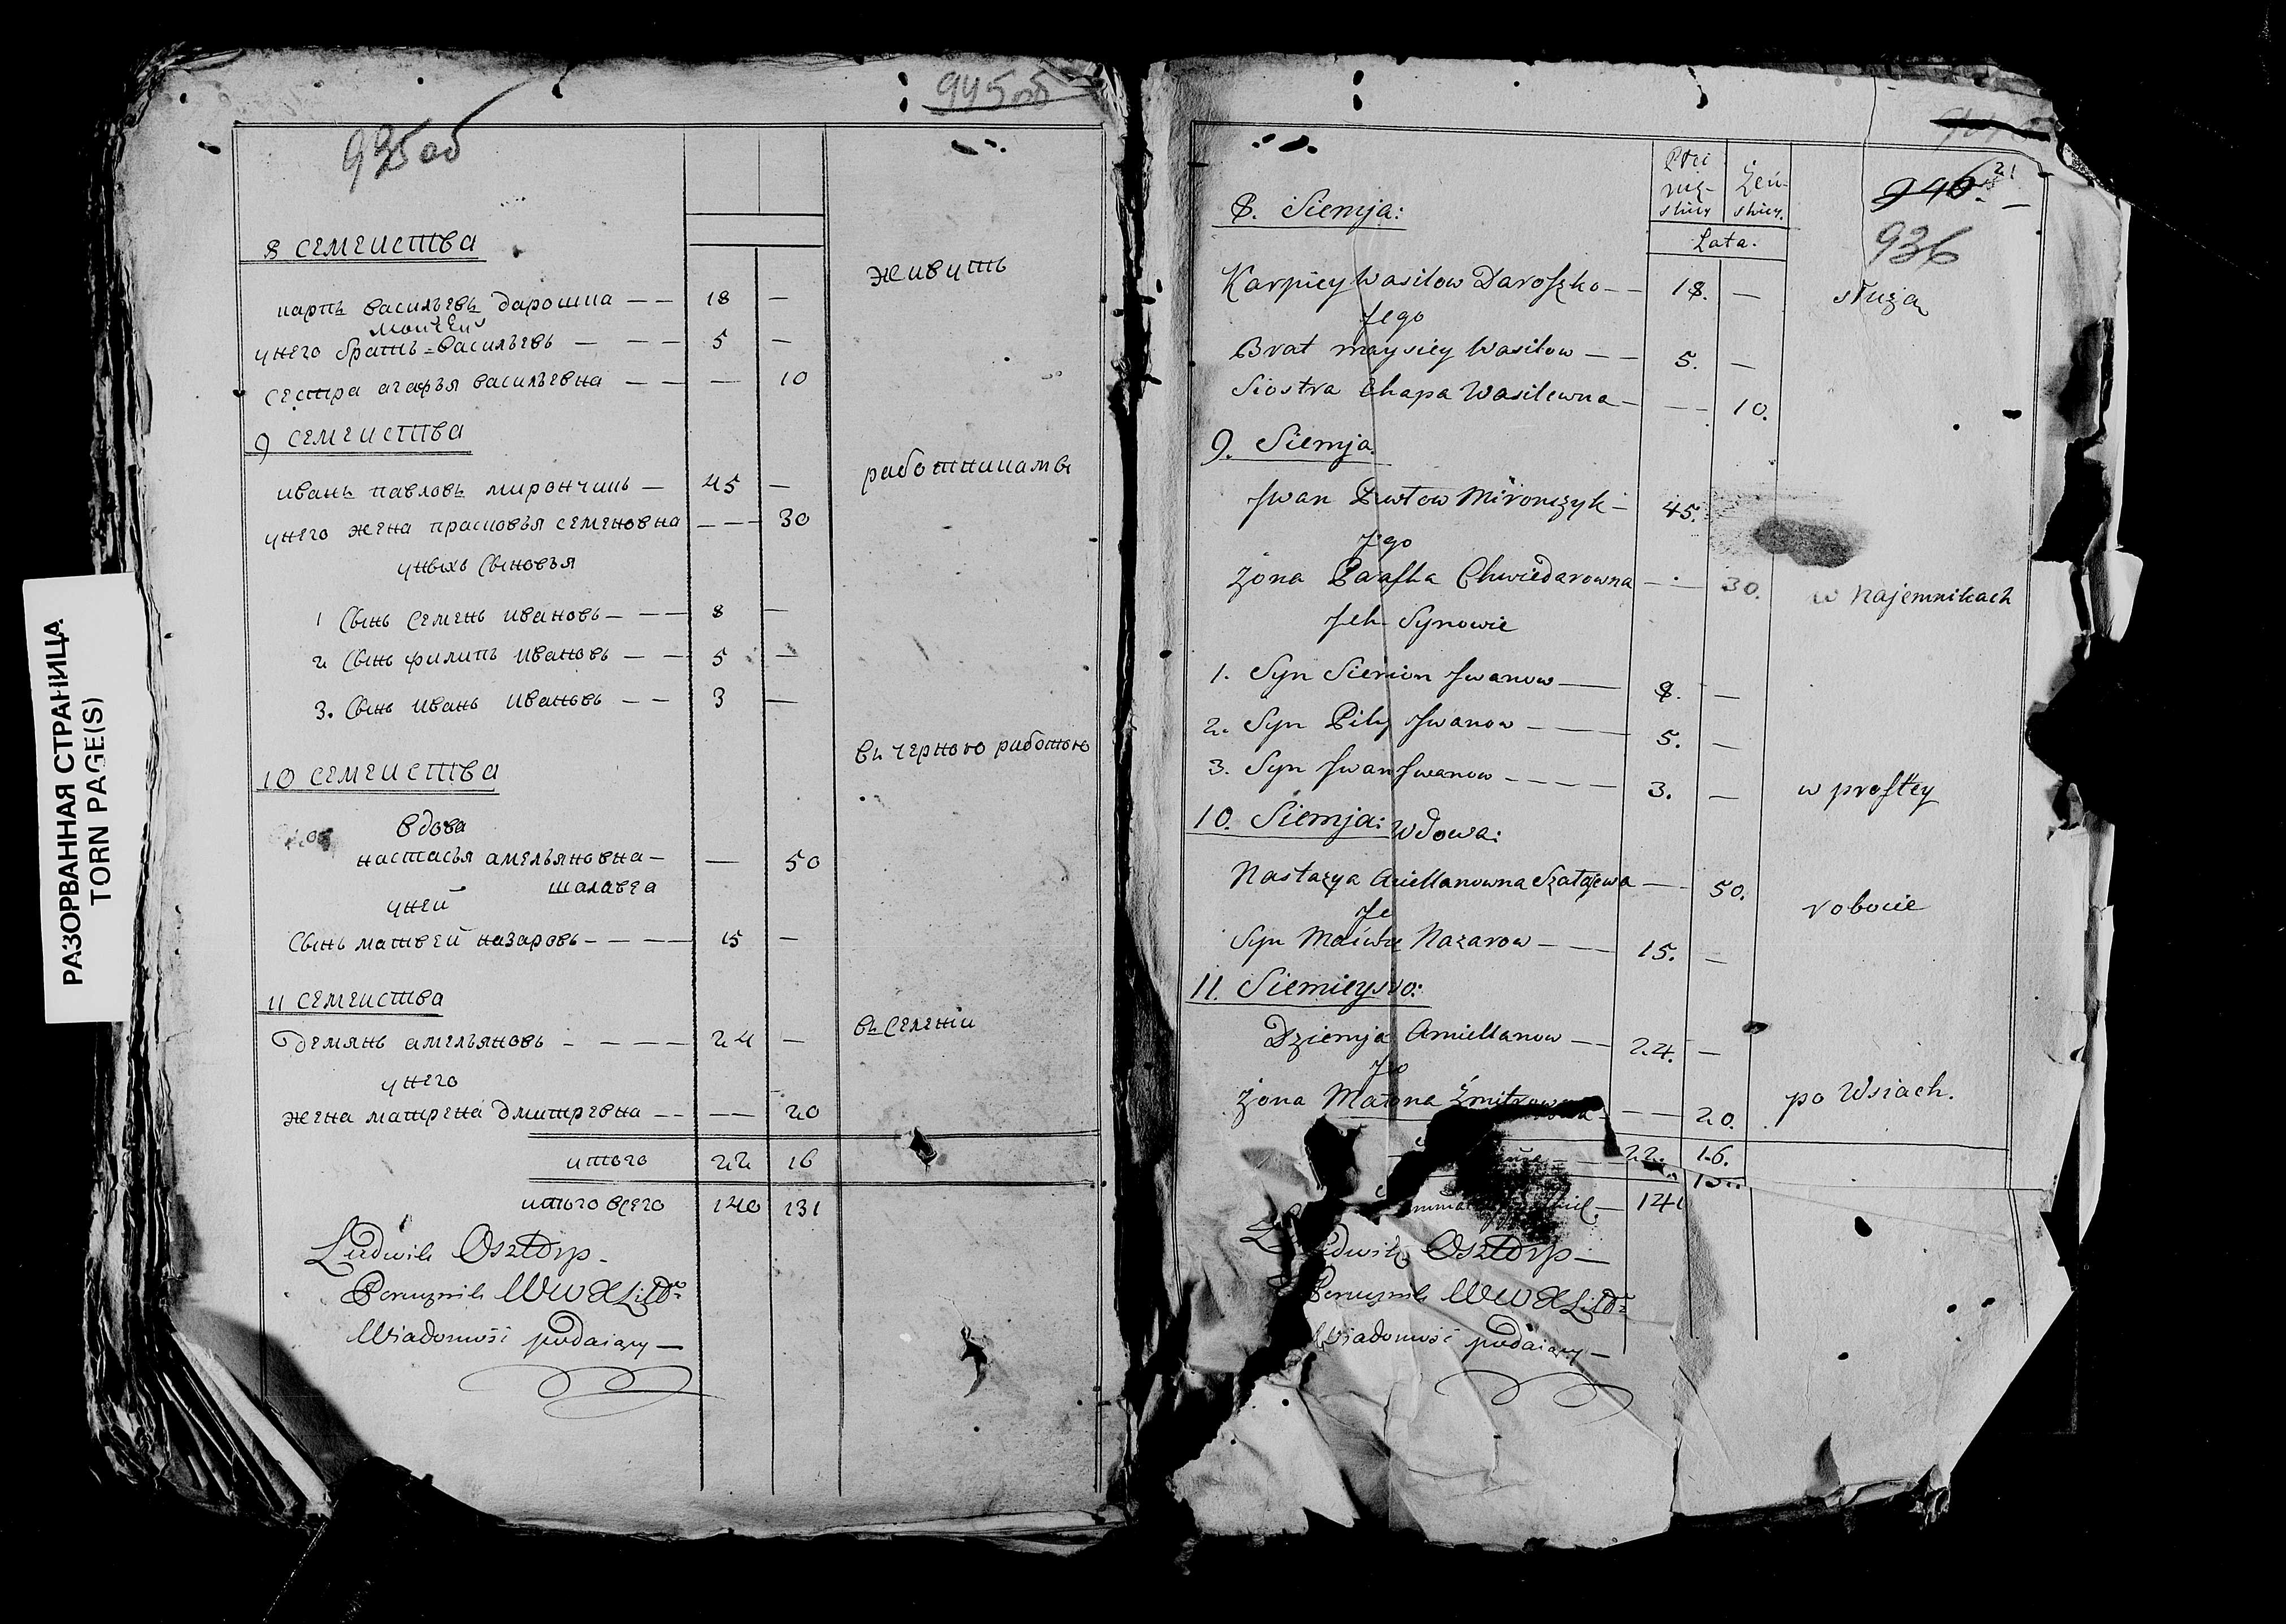 РАЗОРВАННАЯ СТРАНИЦА
TORN PAGE(S)
945 об
935 об
8 семеиства
живуть
карпъ васильевъ дарошка — — 18 —
мойсей
унего братъ васильевъ — — — 5 —
сестра агафья васильевна — — — 10
9 семеиства
работниками
иванъ павловъ мирончикъ — 45 —
унего жена прасковья семеновна — — 30
уныхъ сыновья
1 сынъ семенъ ивановъ — — — 8 —
2 сынъ филипъ ивановъ — — 5 —
3. сынъ иванъ ивановъ — — 3 —
въ черною работою
10 семеиства
вдова
настасья амельяновна — — 50
шалавеа
уней
сынъ матвей назаровъ — — — — 15 —
11 семеиства
въ селеніи
демянъ амельяновъ — — — — 24 —
унего
жена матрена дмитревна — — — — 20
итого 22 16
итого всего 140 131
Ludwik Osztorp —
Porucznik WWXLitt
Wiadomość podaiący —
Płci
męz- żeń-
skiey skiey.
946.
936
8. Siemja:
Lata.
Karpiey Wasilow Daroszko — — 18. —
służą
Jego
Brat maysiey Wasilow — — 5. —
Siostra Ahapa Wasilewna — — — 10.
9. Siemja.
Jwan Pawłow Mironczyk — 45.
Jego
Żona Paraska Chwiedarowna — — 30.
w najemnikach
Jch Synowie
1. Syn Siemion Jwanow — — 8. —
2. Syn Pilip Jwanow — — — — 5. —
3. Syn Jwan Jwanow — — — — 3. —
w prostey
10. Siemja: Wdowa:
Nastazya Amiellanowna Szałajewa — 50.
robocie
Je
Syn Maćwiey Nazarow — — — 15. —
11. Siemieyswo:
Dziemja Amiellanow — — 22.4. —
Jeo
Żona Matrona Zmitrowna — — — 20.
po Wsiach.
22. 16.
141
Ludwik Osztorp —
Porucznik WWXLitt
Wiadomość podaiący —